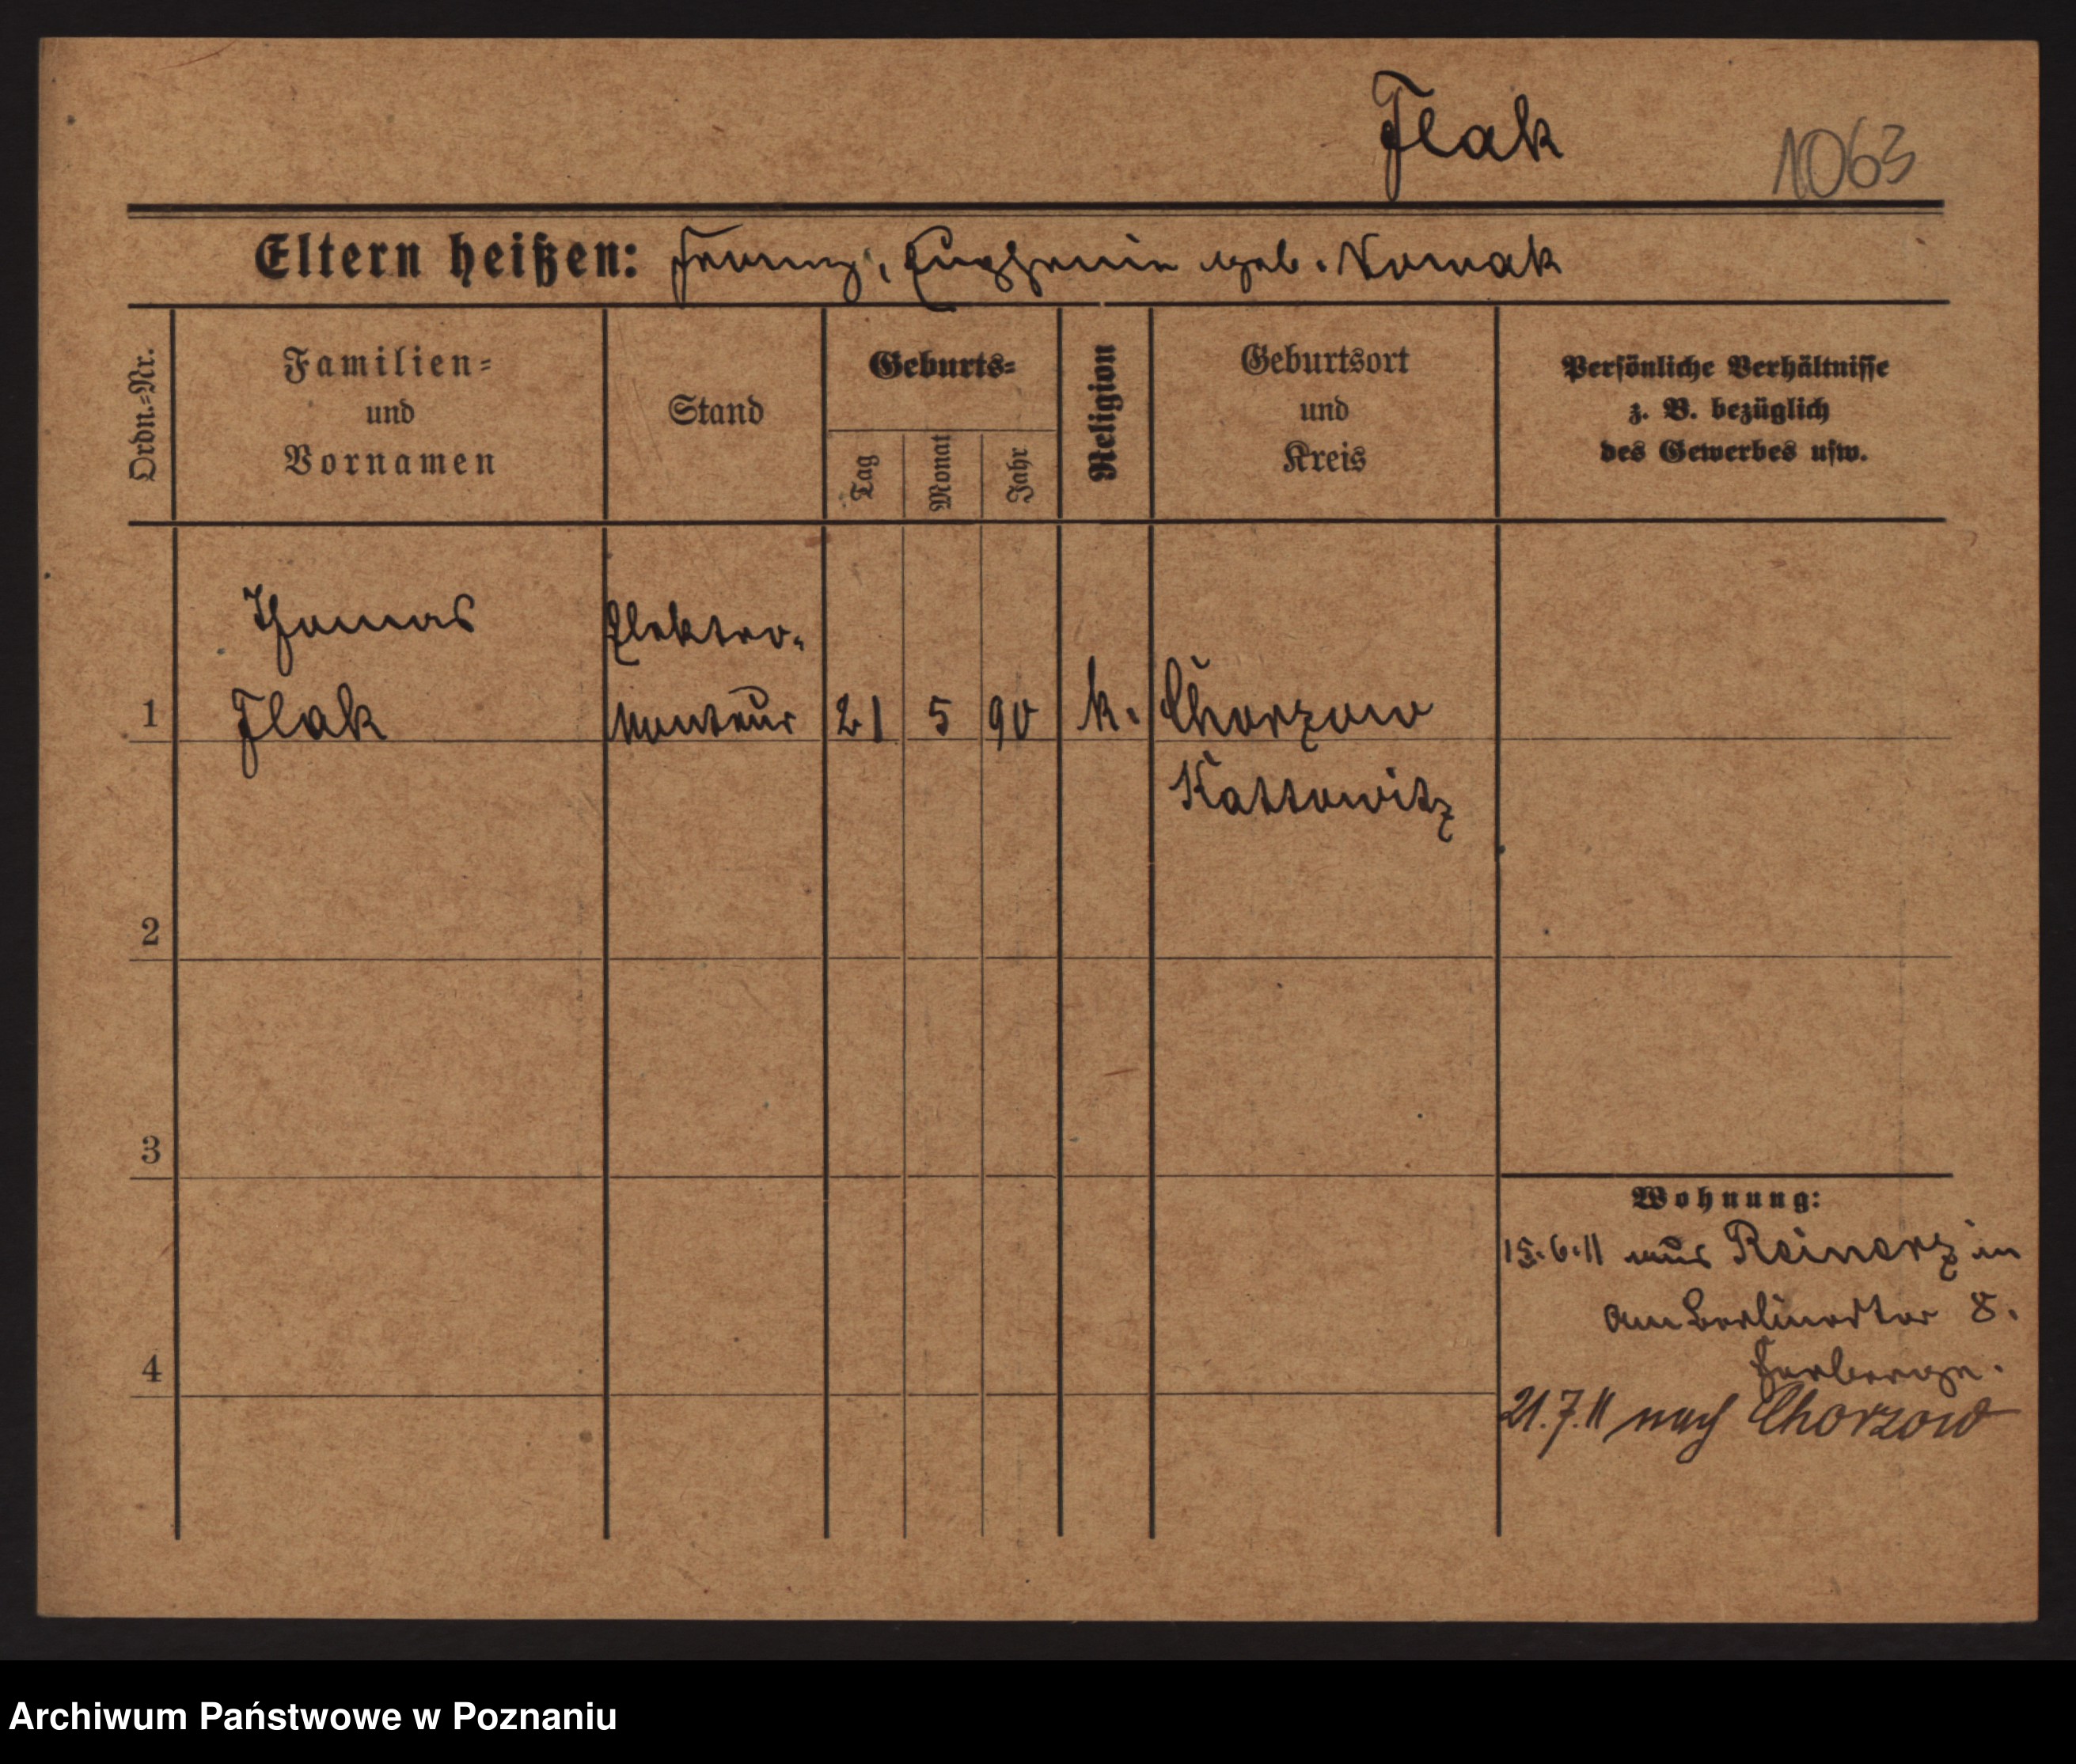 Flak
1063
Eltern heißen: Franz, Eugenie geb. Nowak
Ordn.-Nr.
Familien-
und
Vornamen
Stand
Geburts-
Tag
Monat
Jahr
Religion
Geburtsort
und
Kreis
Persönliche Verhältnisse
z. B. bezüglich
des Gewerbes usw.
Thomas Elektro-
1 Flak monteur 21 5 90 k. Chorzow
Kattowitz
2
3
Wohnung:
15.6.11 aus Reinerz in
am Berlinertor 8.
4
Herberge.
21.7.11 nach Chorzow
Archiwum Państwowe w Poznaniu